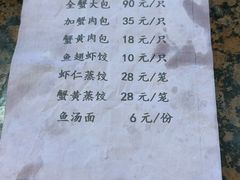 全蟹大包 90元/只
加蟹肉包 35元/只
蟹黄肉包 18元/只
鱼翅虾饺 10元/只
虾仁蒸饺 28元/笼
蟹黄蒸饺 28元/笼
鱼汤面 6元/份